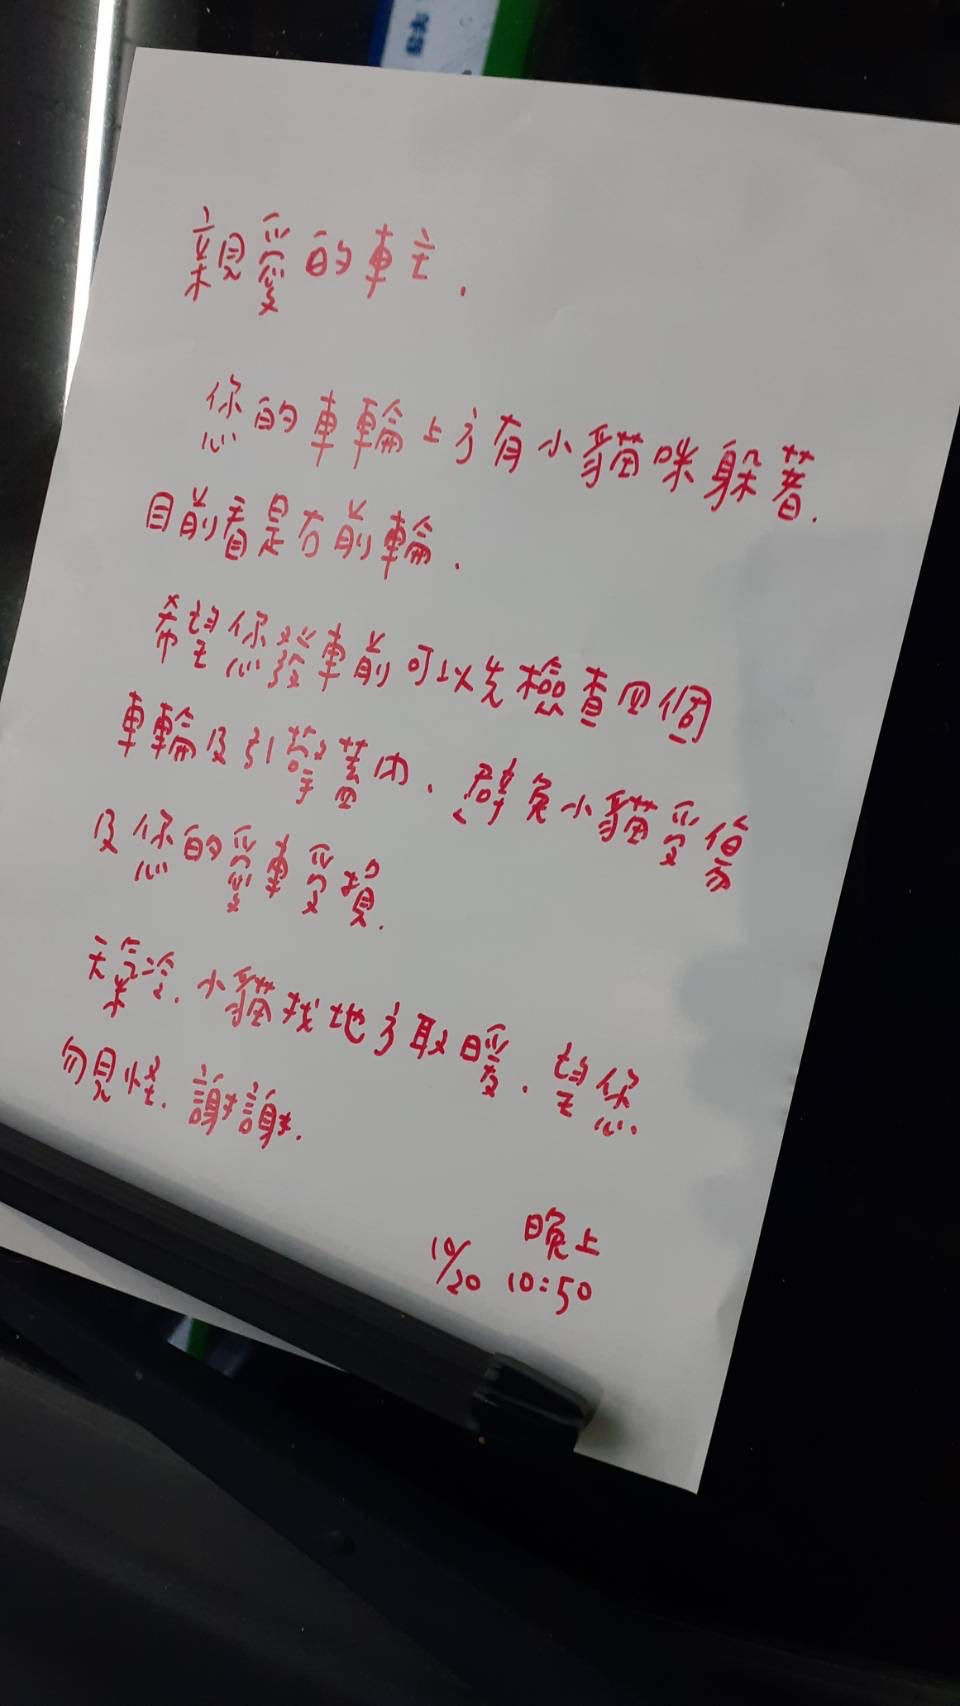 親愛的車主.
您的車輪上方有小貓咪躲著.
目前看是右前輪.
希望您發車前可以先檢查四個
車輪及引擎蓋內. 避免小貓受傷
及您的愛車受損.
天氣冷. 小貓找地方取暖. 望您
勿見怪. 謝謝.
晚上
10/20 10:50